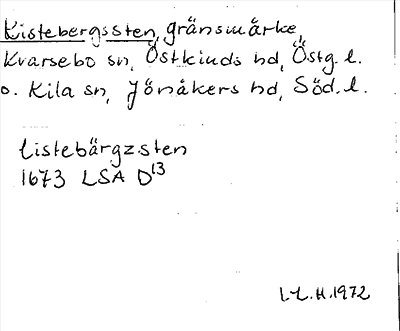 Kistebergssten, gränsmärke,
Kvarsebo sn, Östkinds hd, Östg. l.
o. Kila sn, Jönåkers hd, Söd. l.
Listebärgzsten
1673 LSA D13
I.L. H. 1972